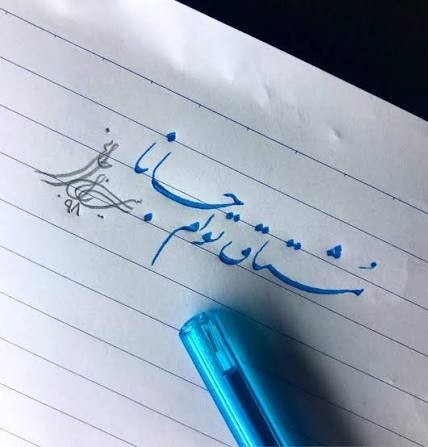 مُشتاق توام جانا.
۹۸